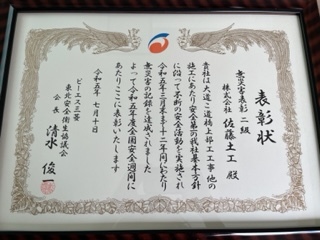 表彰状
無災害表彰 二級
株式会社 佐藤土工 殿
貴社は大道こ道橋上部工工事他の
施工にあたり安全最前我社基本方針
に沿って不断の安全活動を実施され
令和五年三月末まで十二年間にわたり
無災害の記録を達成されました
よって令和五年度全国安全週間に
あたりここに表彰いたします
令和五年 七月十日
ピーエス三菱
東北安全衛生協議会
会長 清水 俊一